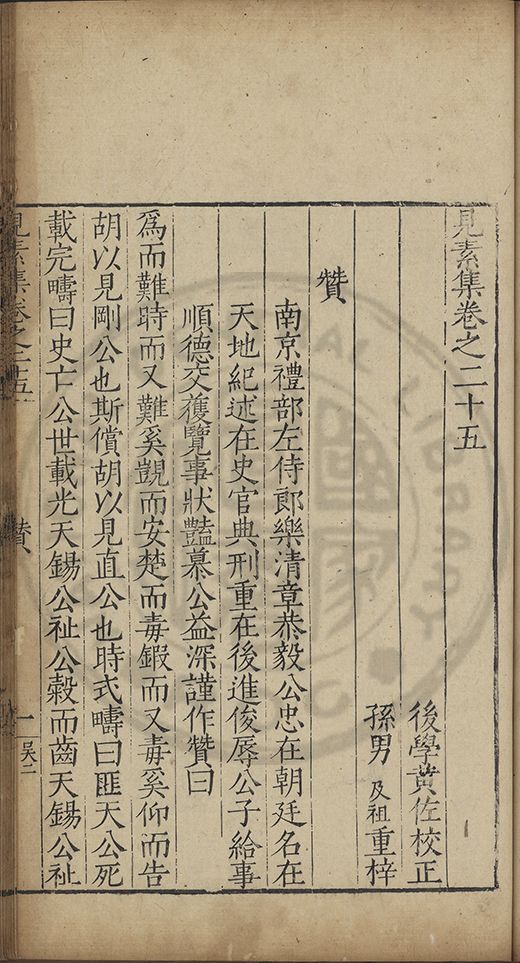 見素集卷之二十五
後學黃佐校正
孫男及祖重梓
贊
南京禮部左侍郎樂清章恭毅公忠在朝廷名在
天地紀述在史官典刑重在後進俊辱公子給事
順德交獲覽事狀豔慕公益深謹作贊曰
為而難時而又難奚覬而安楚而毒鍛而又毒奚仰而告
胡以見剛公也斯償胡以見直公也時式疇曰匪天公死
載完疇曰史亡公世載光天錫公祉公榖而齒天錫公祉
見素集卷之二十五
贊
一
吴二